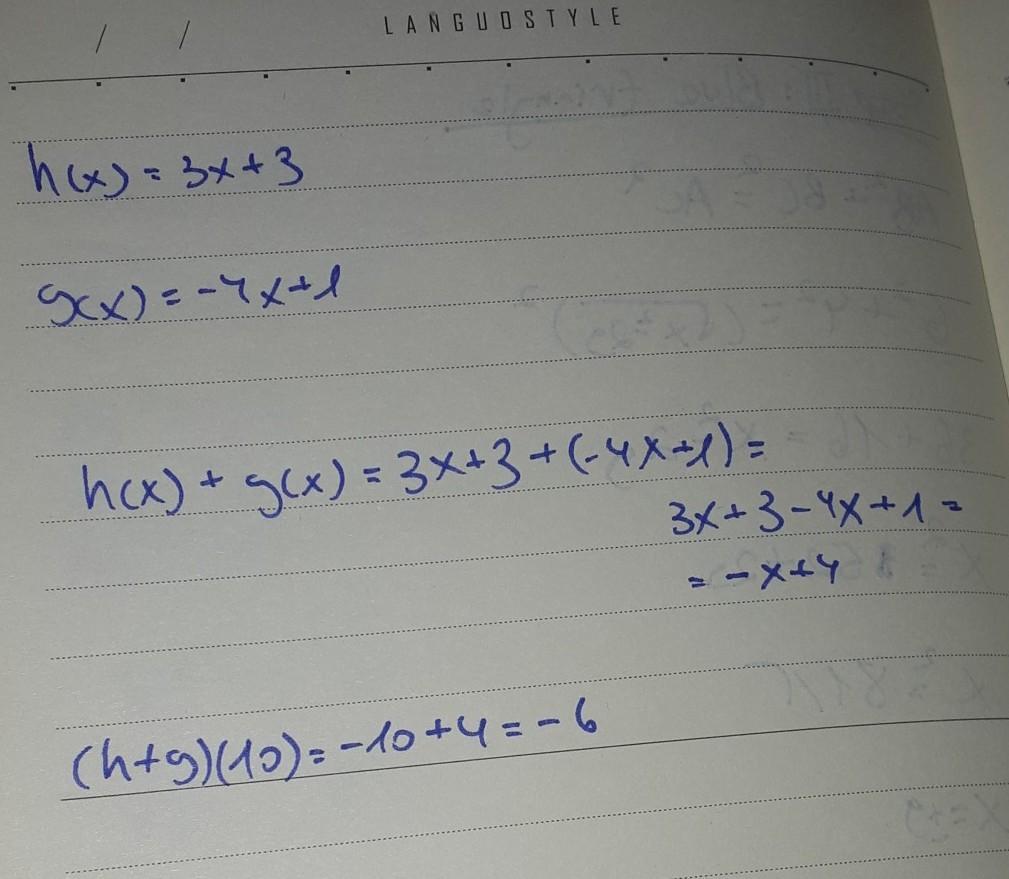 / /
LANGUOSTYLE
h(x) = 3x+3
g(x) = -4x+1
h(x) + g(x) = 3x+3+(-4x+1) =
3x+3-4x+1 =
= -x+4
(h+g)(10) = -10+4 = -6